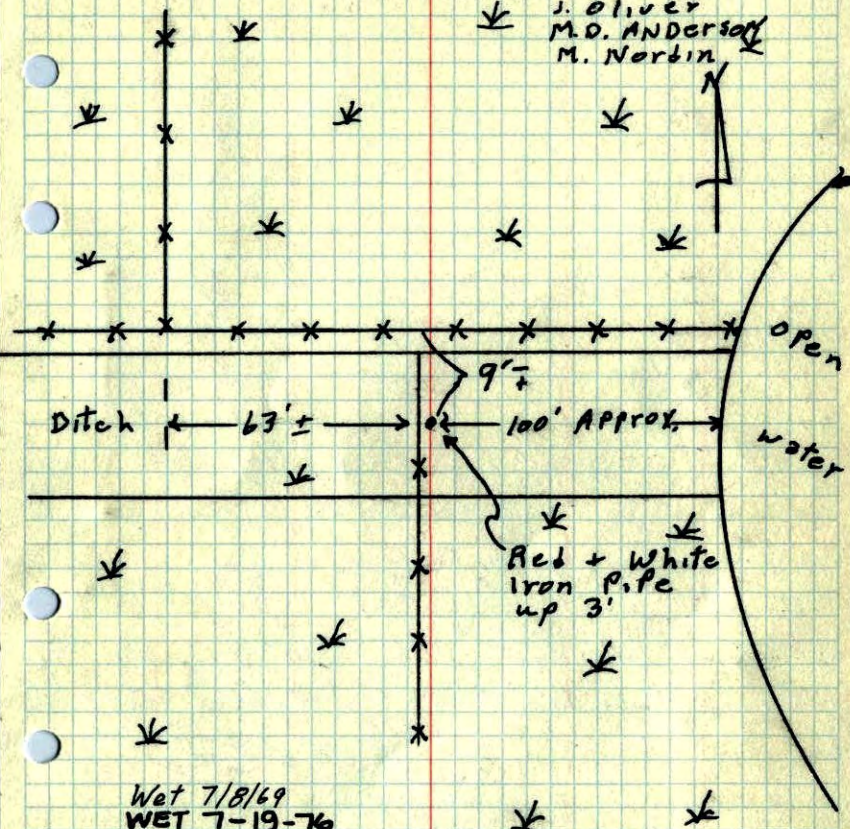 J. Oliver
M.D. ANDerson
M. Nordin
N
Open
water
9'∓
Ditch
63'±
100' Approx.
Red + White
Iron Pipe
up 3'
Wet 7/8/69
WET 7-19-76